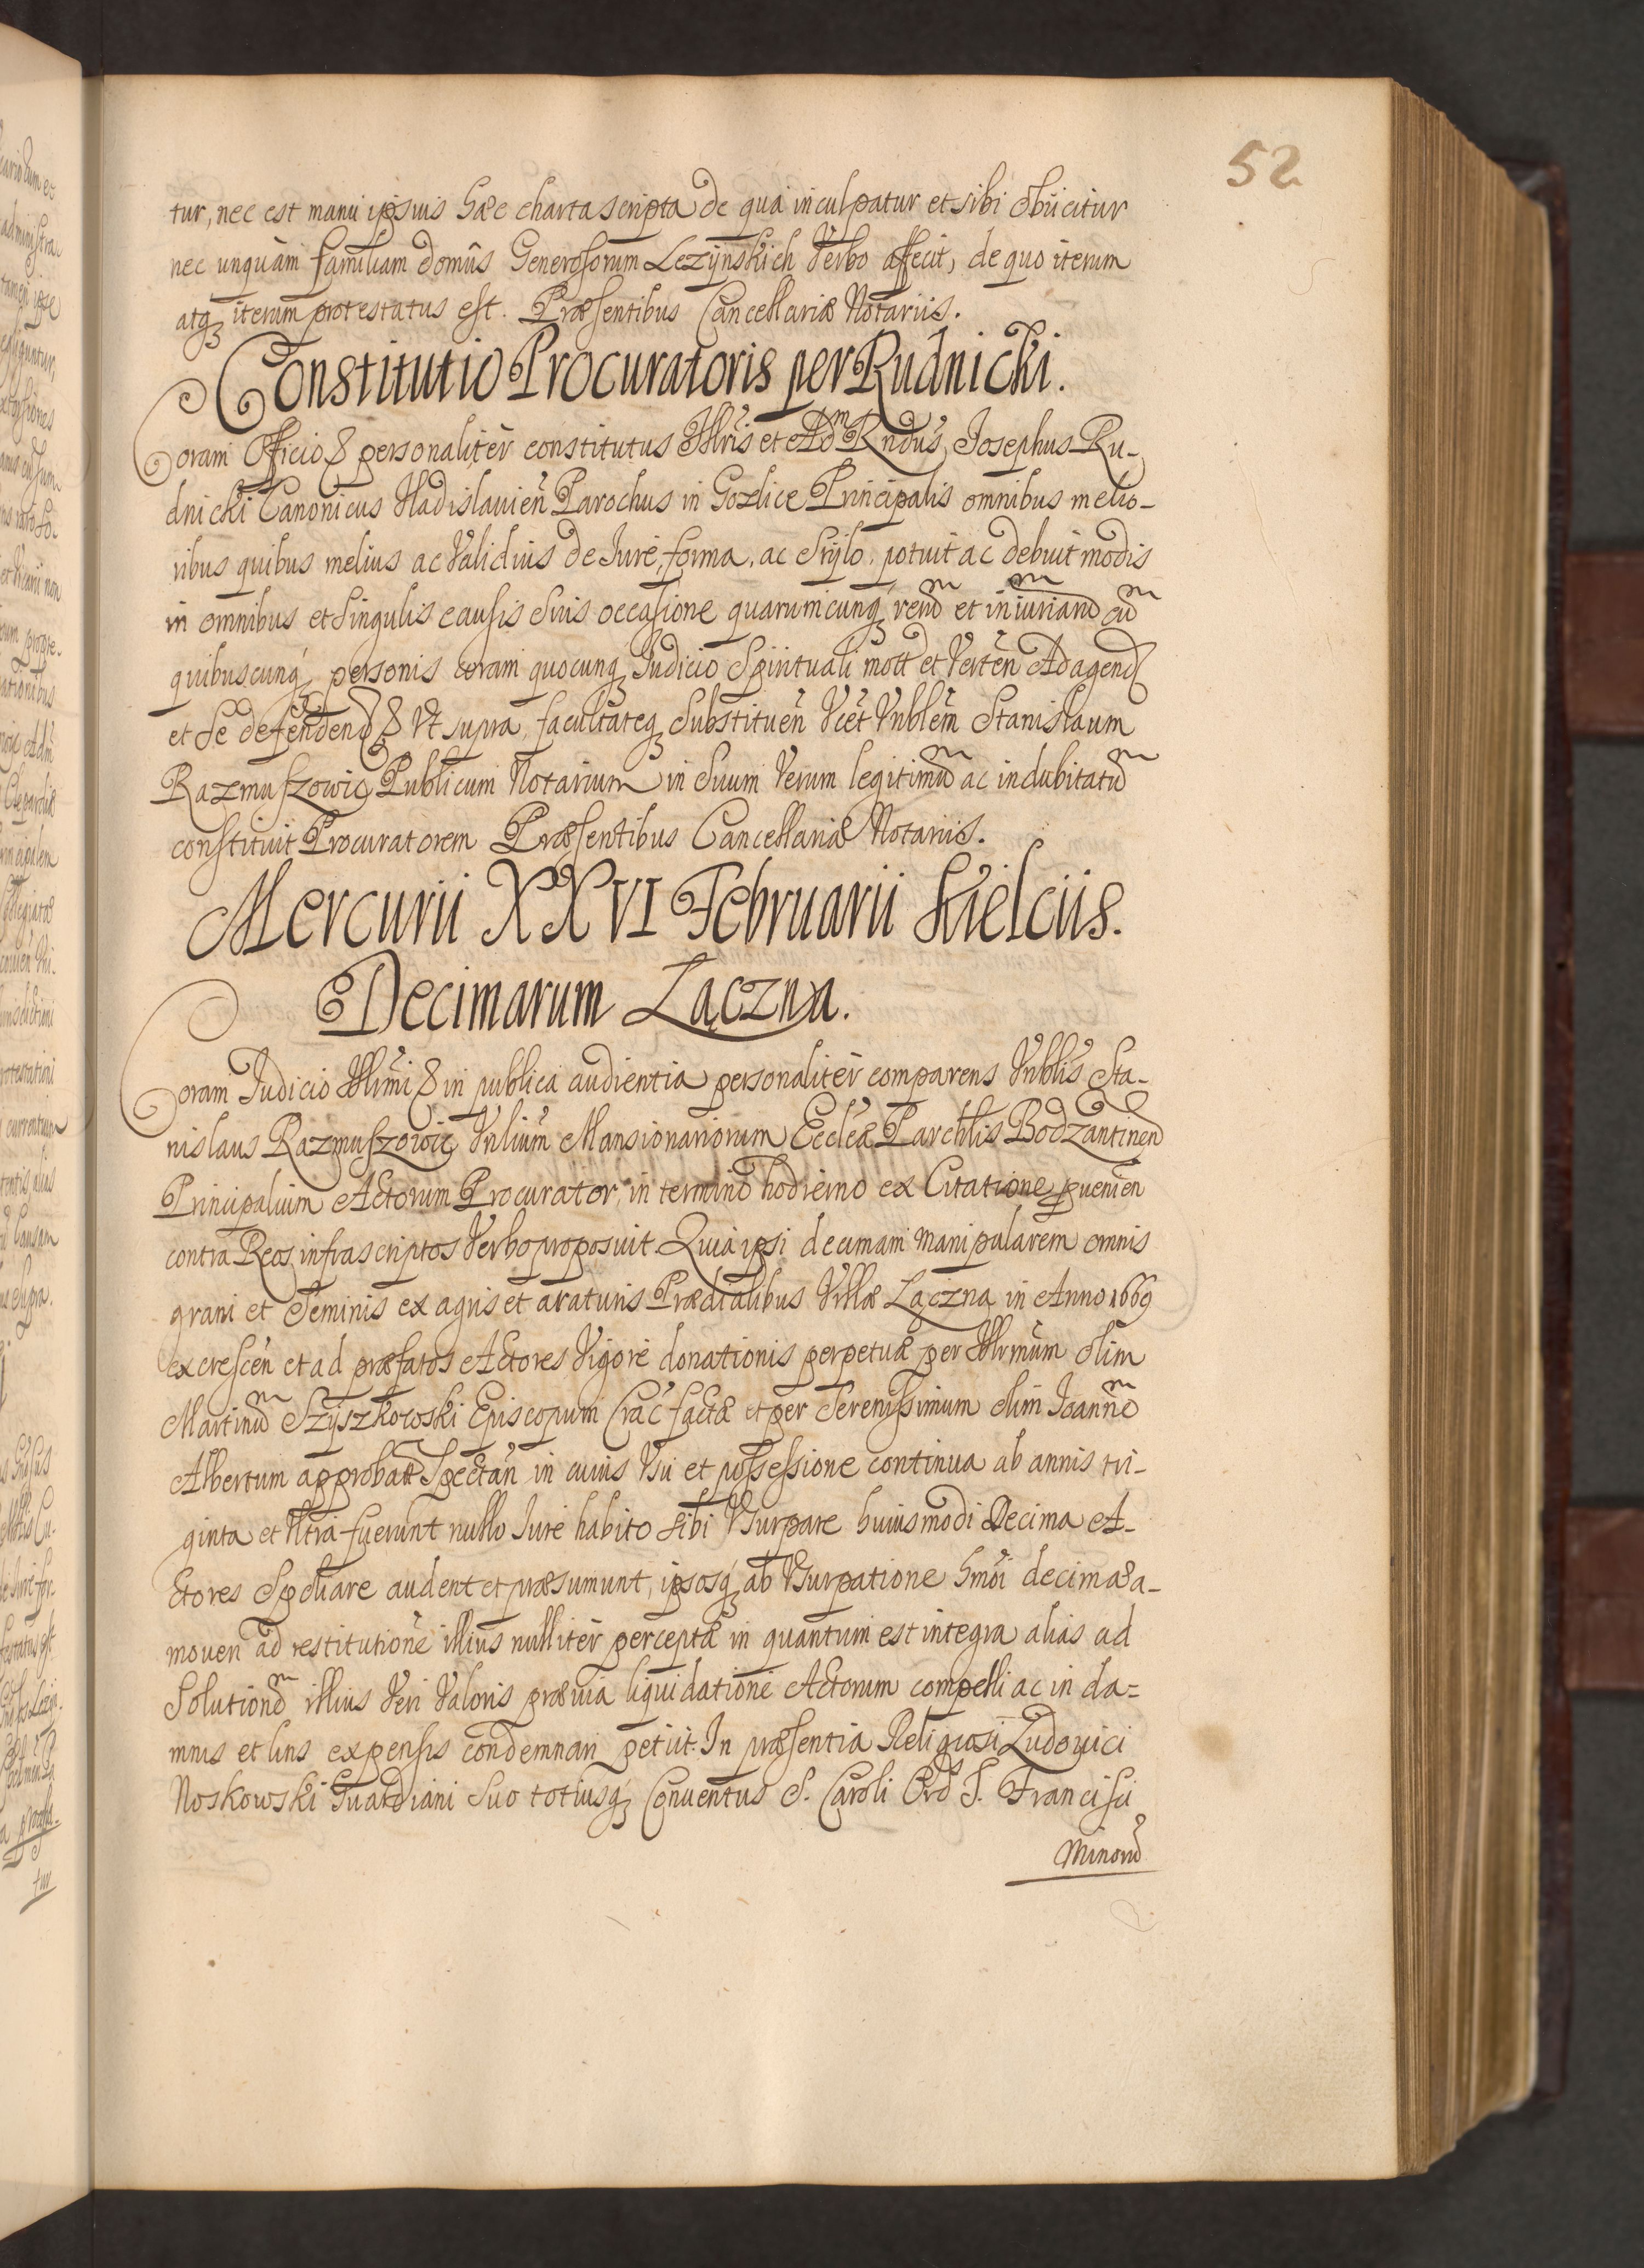 52
tur, nec est manu ipsius hæc charta scripta de qua inculpatur et sibi obiicitur
nec unquam familiam domus Generosorum Lezynskich Verbo affecit, de quo iterum
atq iterum protestatus est. Præsentibus Cancellariæ Notariis.
Constitutio Procuratoris per Rudnicki.
Coram Officio & personaliter constitutus Illris et Adm Rndus Josephus Ru-
dnicki Canonicus Vladislauien Parochus in Gozdice Principalis omnibus melio-
ribus quibus melius ac Validius de Iure, forma, ac Stylo potuit ac debuit modis
in omnibus et Singulis causis Suis occasione quarumcunq rerum et iniuriarum cum
quibuscunq personis coram quocunq Iudicio Spirituali mott et Verten Ad agend
et Se defendend & Vt supra, facultateq Substituen Vcet Vnblem Stanislaum
Razmuszowic Publicum Notarium in Suum Verum legitimum ac indubitatum
constituit Procuratorem Præsentibus Cancellariæ Notariis.
Mercurii XXVI Februarii Kielciis.
Decimarum Łączna.
Coram Iudicio Illrmi & in publica audientia personaliter comparens Vnblis Sta-
nislaus Razmuszowic Vnlium Mansionariorum Eccleæ Parchlis Bodzantinen
Principalium Actorum Procurator, in termino hodierno ex Citatione puenien
contra Reos infrascriptos Verbo proposuit Quia ipsi decimam manipularem omnis
grani et Seminis ex agris et araturis Prædialibus Villæ Łączna in Anno 1669
excrescen et ad præfatos Actores Vigore donationis perpetuæ per Illrmum olim
Martinum Szyszkowski Episcopum Crac factæ et per Serenissimum olim Joannem
Albertum approbatt Spectan in cuius Vsu et possessione continua ab annis tri-
ginta et Vltra fuerunt nullo Iure habito Sibi Vsurpare huiusmodi Decima A-
ctores Spoliare audent et præsumunt, ipsosq ab Vsurpatione hmoi decimæ a-
mouen ad restitutione illius nulliter perceptæ in quantum est integra alias ad
Solutionem illius Veri Valoris præuia liquidatione Actorum compelli ac in da=
mnis et litis expensis condemnari petiit. In præsentia Religiosi Ludouici
Noskowski Guardiani Suo totiusq Conuentus S. Caroli Ord S. Francisci
Minorum